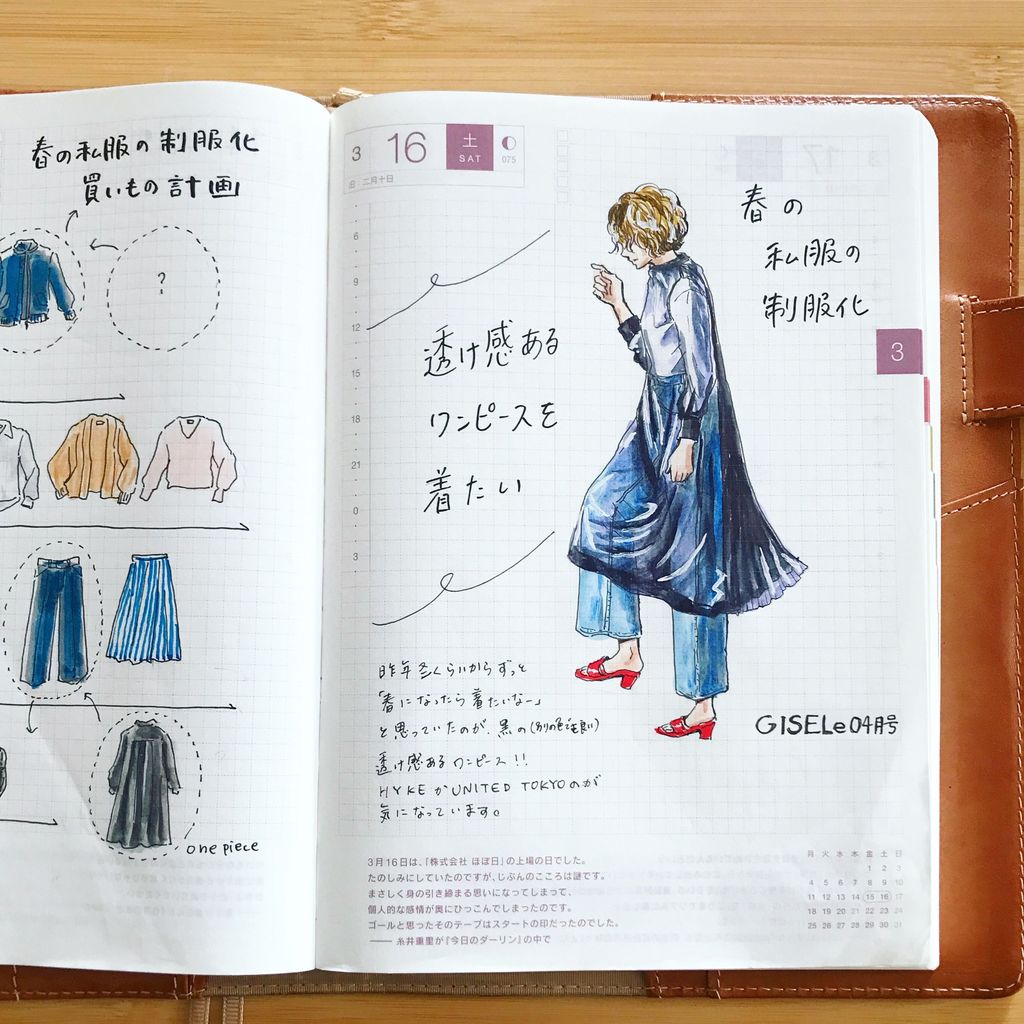 春の私服の制服化
買いもの計画
?
one piece
3 16 土 SAT 075
旧 二月十日
6
9
12
15
18
21
0
3
透け感ある
ワンピースを
着たい
春の
私服の
制服化
3
昨年冬くらいからずっと
「春になったら着たいなー」
と思っていたのが、黒の(別の色でも良い)
透け感あるワンピース!!
HYKEかUNITED TOKYOのが
気になっています。
GISELe 04月号
3月16日は、「株式会社 ほぼ日」の上場の日でした。
たのしみにしていたのですが、じぶんのこころは謎です。
まさしく身の引き締まる思いになってしまって、
個人的な感情が奥にひっこんでしまったのです。
ゴールと思ったそのテープはスタートの印だったのでした。
—— 糸井重里が『今日のダーリン』の中で
月 火 水 木 金 土 日
1 2 3
4 5 6 7 8 9 10
11 12 13 14 15 16 17
18 19 20 21 22 23 24
25 26 27 28 29 30 31